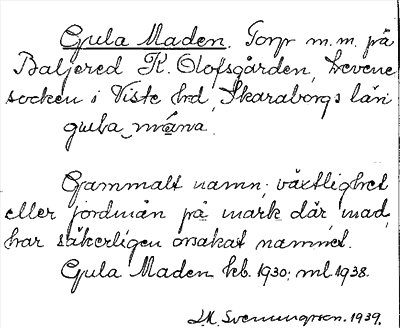 Gula Maden. Torp m.m. på
Baljered K. Olofsgården, Levene
socken i Viste hrd, Skaraborgs län
guɩla
Gammalt namn; växtlighet
eller jordmån på mark där mad
har säkerligen orsakat namnet.
Gula Maden hb. 1930; ml. 1938.
J.M. Svenungsson. 1939.